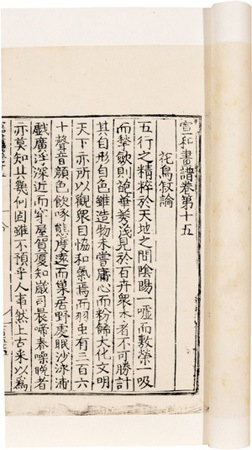 宣和畫譜卷第十五
花鳥叙論
五行之精粹於天地之間陰陽一噓而敷榮一吸
而揫斂則葩華秀茂見於百卉衆木者不可勝計
其自形自色雖造物未嘗庸心而粉飾大化文明
天下亦所以觀衆目協和氣焉而羽虫有三百六
十聲音顏色飲啄態度遠而巢居野處眠沙泳浦
戲廣浮深近而穿屋賀厦知歲司晨啼春噪晚者
亦莫知其幾何雖不預乎人事然上古采以爲